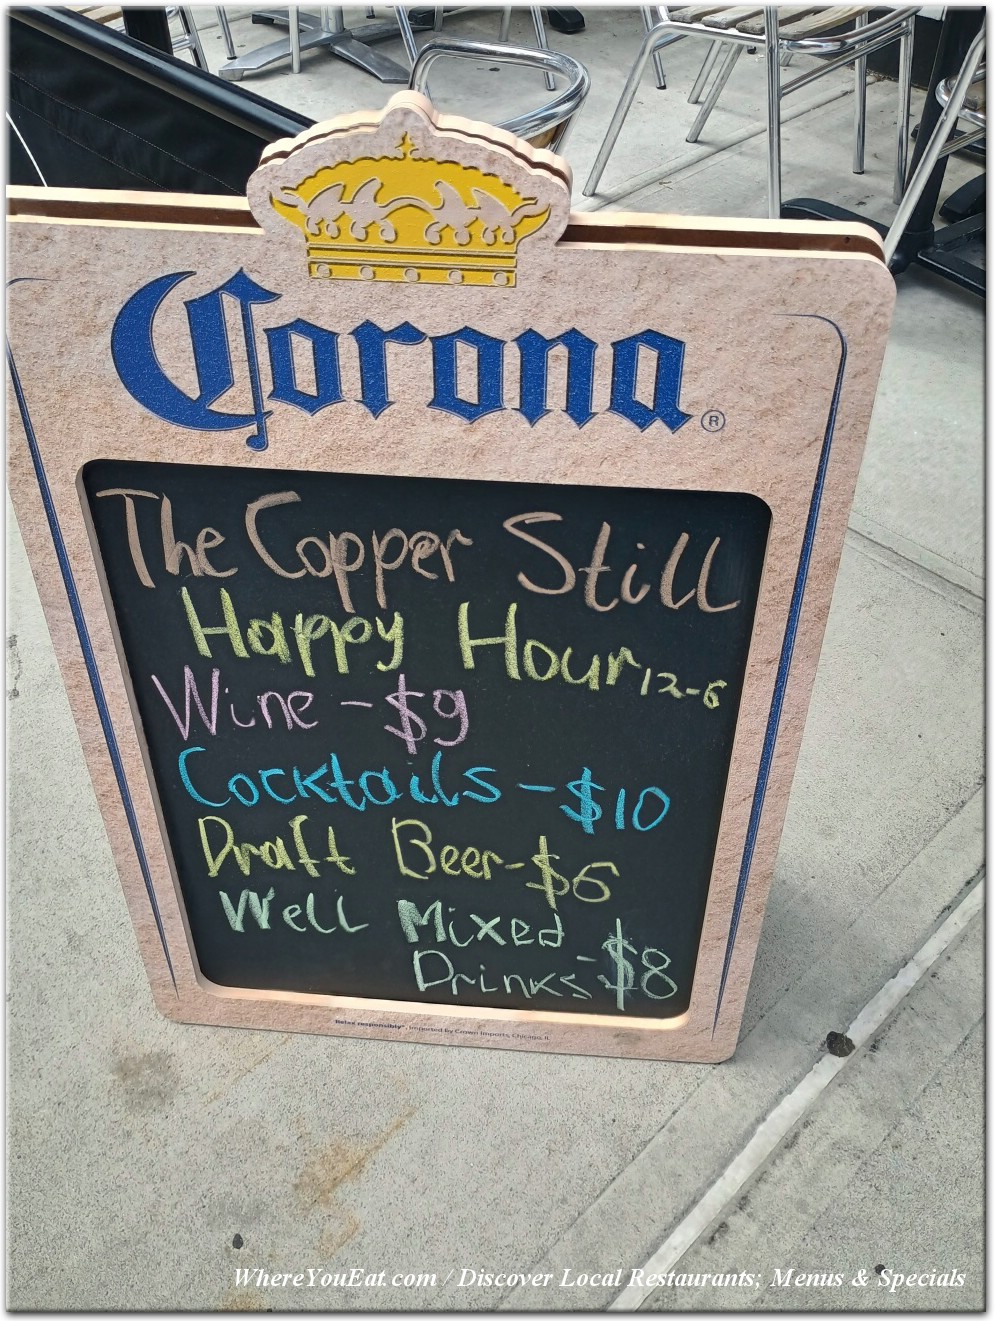 Corona®
The Copper Still
Happy Hour 12-6
Wine - $9
Cocktails - $10
Draft Beer - $6
Well Mixed
Drinks - $8
Relax responsibly®. Imported by Crown Imports, Chicago, IL
WhereYouEat.com / Discover Local Restaurants; Menus & Specials